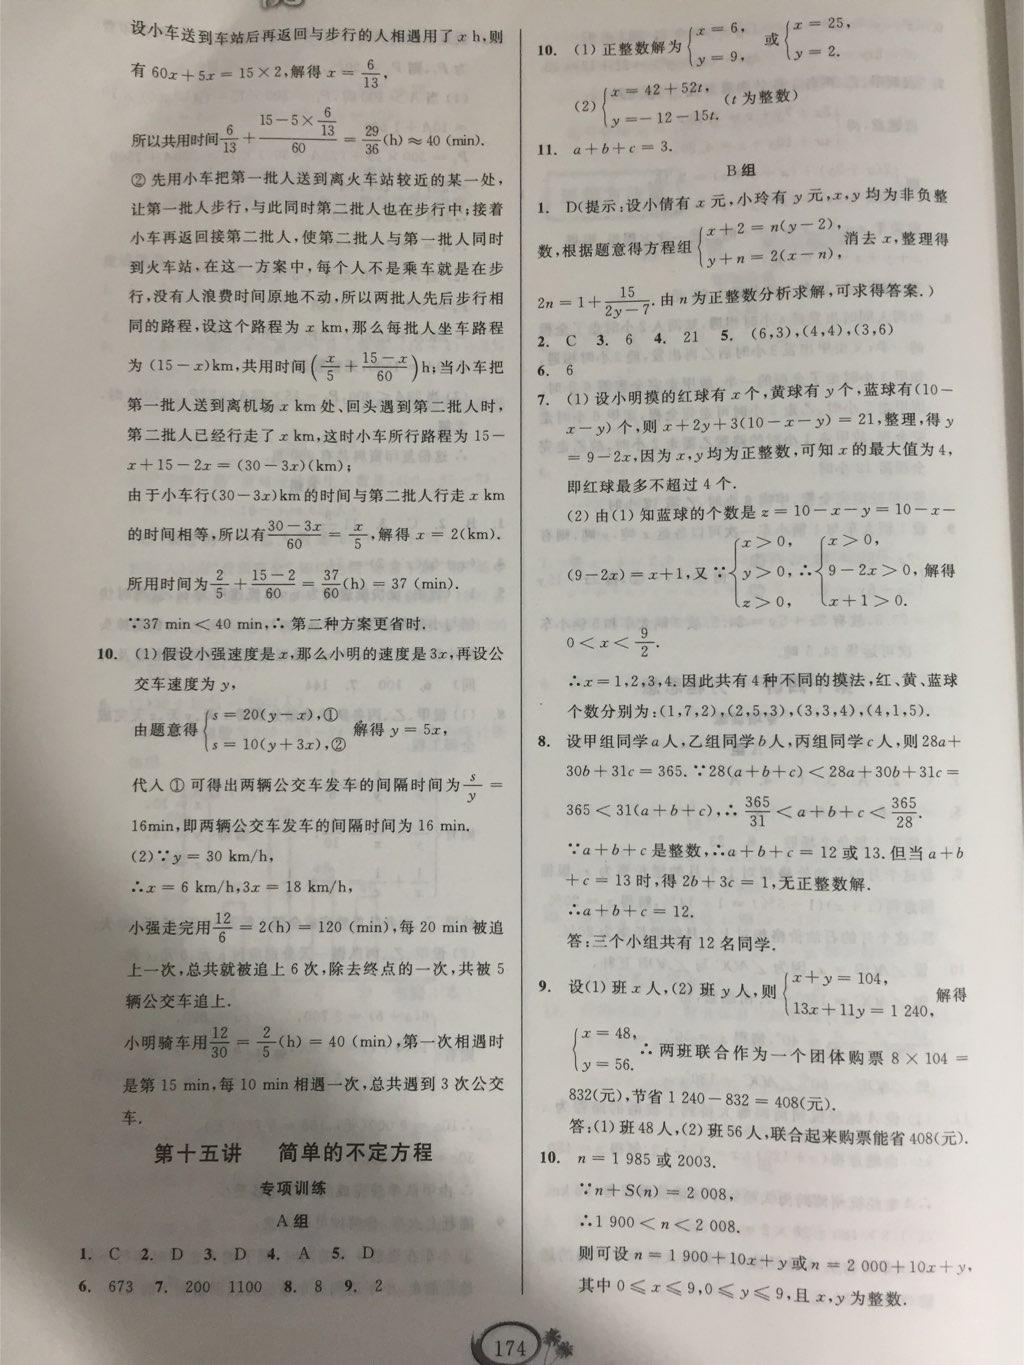 设小车送到车站后再返回与步行的人相遇用了 x h,则
有 60x+5x=15×2,解得 x=6/13,
所以共用时间 6/13+(15-5×6/13)/60=29/36(h)≈40 (min).
②先用小车把第一批人送到离火车站较近的某一处,
让第一批人步行,与此同时第二批人也在步行中;接着
小车再返回接第二批人,使第二批人与第一批人同时
到火车站,在这一方案中,每个人不是乘车就是在步
行,没有人浪费时间原地不动,所以两批人先后步行相
同的路程,设这个路程为 x km,那么每批人坐车路程
为 (15-x)km,共用时间(x/5+(15-x)/60)h;当小车把
第一批人送到离机场 x km处、回头遇到第二批人时,
第二批人已经行走了 x km,这时小车所行路程为 15-
x+15-2x=(30-3x)(km);
由于小车行(30-3x)km的时间与第二批人行走 x km
的时间相等,所以有(30-3x)/60=x/5,解得 x=2(km).
所用时间为 2/5+(15-2)/60=37/60(h)=37 (min).
∵37 min<40 min,∴第二种方案更省时.
10. (1)假设小强速度是 x,那么小明的速度是 3x,再设公
交车速度为 y,
由题意得{s=20(y-x),① s=10(y+3x),② 解得 y=5x,
代人①可得出两辆公交车发车的间隔时间为 s/y=
16min,即两辆公交车发车的间隔时间为 16 min.
(2)∵y=30 km/h,
∴x=6 km/h,3x=18 km/h,
小强走完用12/6=2(h)=120 (min),每 20 min 被追
上一次,总共就被追上 6 次,除去终点的一次,共被 5
辆公交车追上.
小明骑车用12/30=2/5(h)=40 (min),第一次相遇时
是第 15 min,每 10 min 相遇一次,总共遇到 3 次公交
车.
第十五讲 简单的不定方程
专项训练
A组
1. C 2. D 3. D 4. A 5. D
6. 673 7. 200 1100 8. 8 9. 2
10. (1)正整数解为{x=6, y=9, 或{x=25, y=2.
(2){x=42+52t, y=-12-15t. (t为整数)
11. a+b+c=3.
B组
1. D(提示:设小倩有 x 元,小玲有 y 元,x,y 均为非负整
数,根据题意得方程组{x+2=n(y-2), y+n=2(x-n), 消去 x,整理得
2n=1+15/(2y-7).由 n 为正整数分析求解,可求得答案.)
2. C 3. 6 4. 21 5. (6,3),(4,4),(3,6)
6. 6
7. (1)设小明摸的红球有 x 个,黄球有 y 个,蓝球有(10-
x-y)个,则 x+2y+3(10-x-y)=21,整理,得 y
=9-2x,因为 x,y均为正整数,可知 x 的最大值为 4,
即红球最多不超过 4 个.
(2)由(1)知蓝球的个数是 z=10-x-y=10-x-
(9-2x)=x+1,又∵{x>0, y>0, z>0, ∴{x>0, 9-2x>0, x+1>0. 解得
0<x<9/2.
∴x=1,2,3,4.因此共有4种不同的摸法,红、黄、蓝球
个数分别为:(1,7,2),(2,5,3),(3,3,4),(4,1,5).
8. 设甲组同学 a 人,乙组同学 b 人,丙组同学 c 人,则 28a+
30b+31c=365.∵28(a+b+c)<28a+30b+31c=
365<31(a+b+c),∴365/31<a+b+c<365/28.
∵a+b+c 是整数,∴a+b+c=12 或 13.但当 a+b
+c=13 时,得 2b+3c=1,无正整数解.
∴a+b+c=12.
答:三个小组共有 12 名同学.
9. 设(1)班 x 人,(2)班 y 人,则{x+y=104, 13x+11y=1 240, 解得
{x=48, y=56. ∴两班联合作为一个团体购票 8×104=
832(元),节省 1 240-832=408(元).
答:(1)班48人,(2)班56人,联合起来购票能省408(元).
10. n=1 985 或 2003.
∵n+S(n)=2 008,
∴1 900<n<2 008.
则可设 n=1 900+10x+y 或 n=2 000+10x+y,
其中 0≤x≤9,0≤y≤9,且 x,y为整数.
174